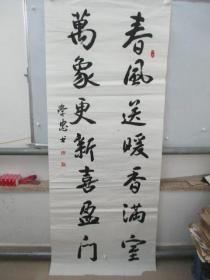 春風送暖香滿室
萬象更新喜盈门
學忠书